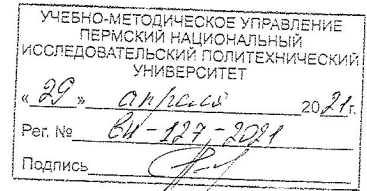 УЧЕБНО-МЕТОДИЧЕСКОЕ УПРАВЛЕНИЕ
ПЕРМСКИЙ НАЦИОНАЛЬНЫЙ
ИССЛЕДОВАТЕЛЬСКИЙ ПОЛИТЕХНИЧЕСКИЙ
УНИВЕРСИТЕТ
«29» апреля 2021г.
Рег. № ВИ-127-2021
Подпись